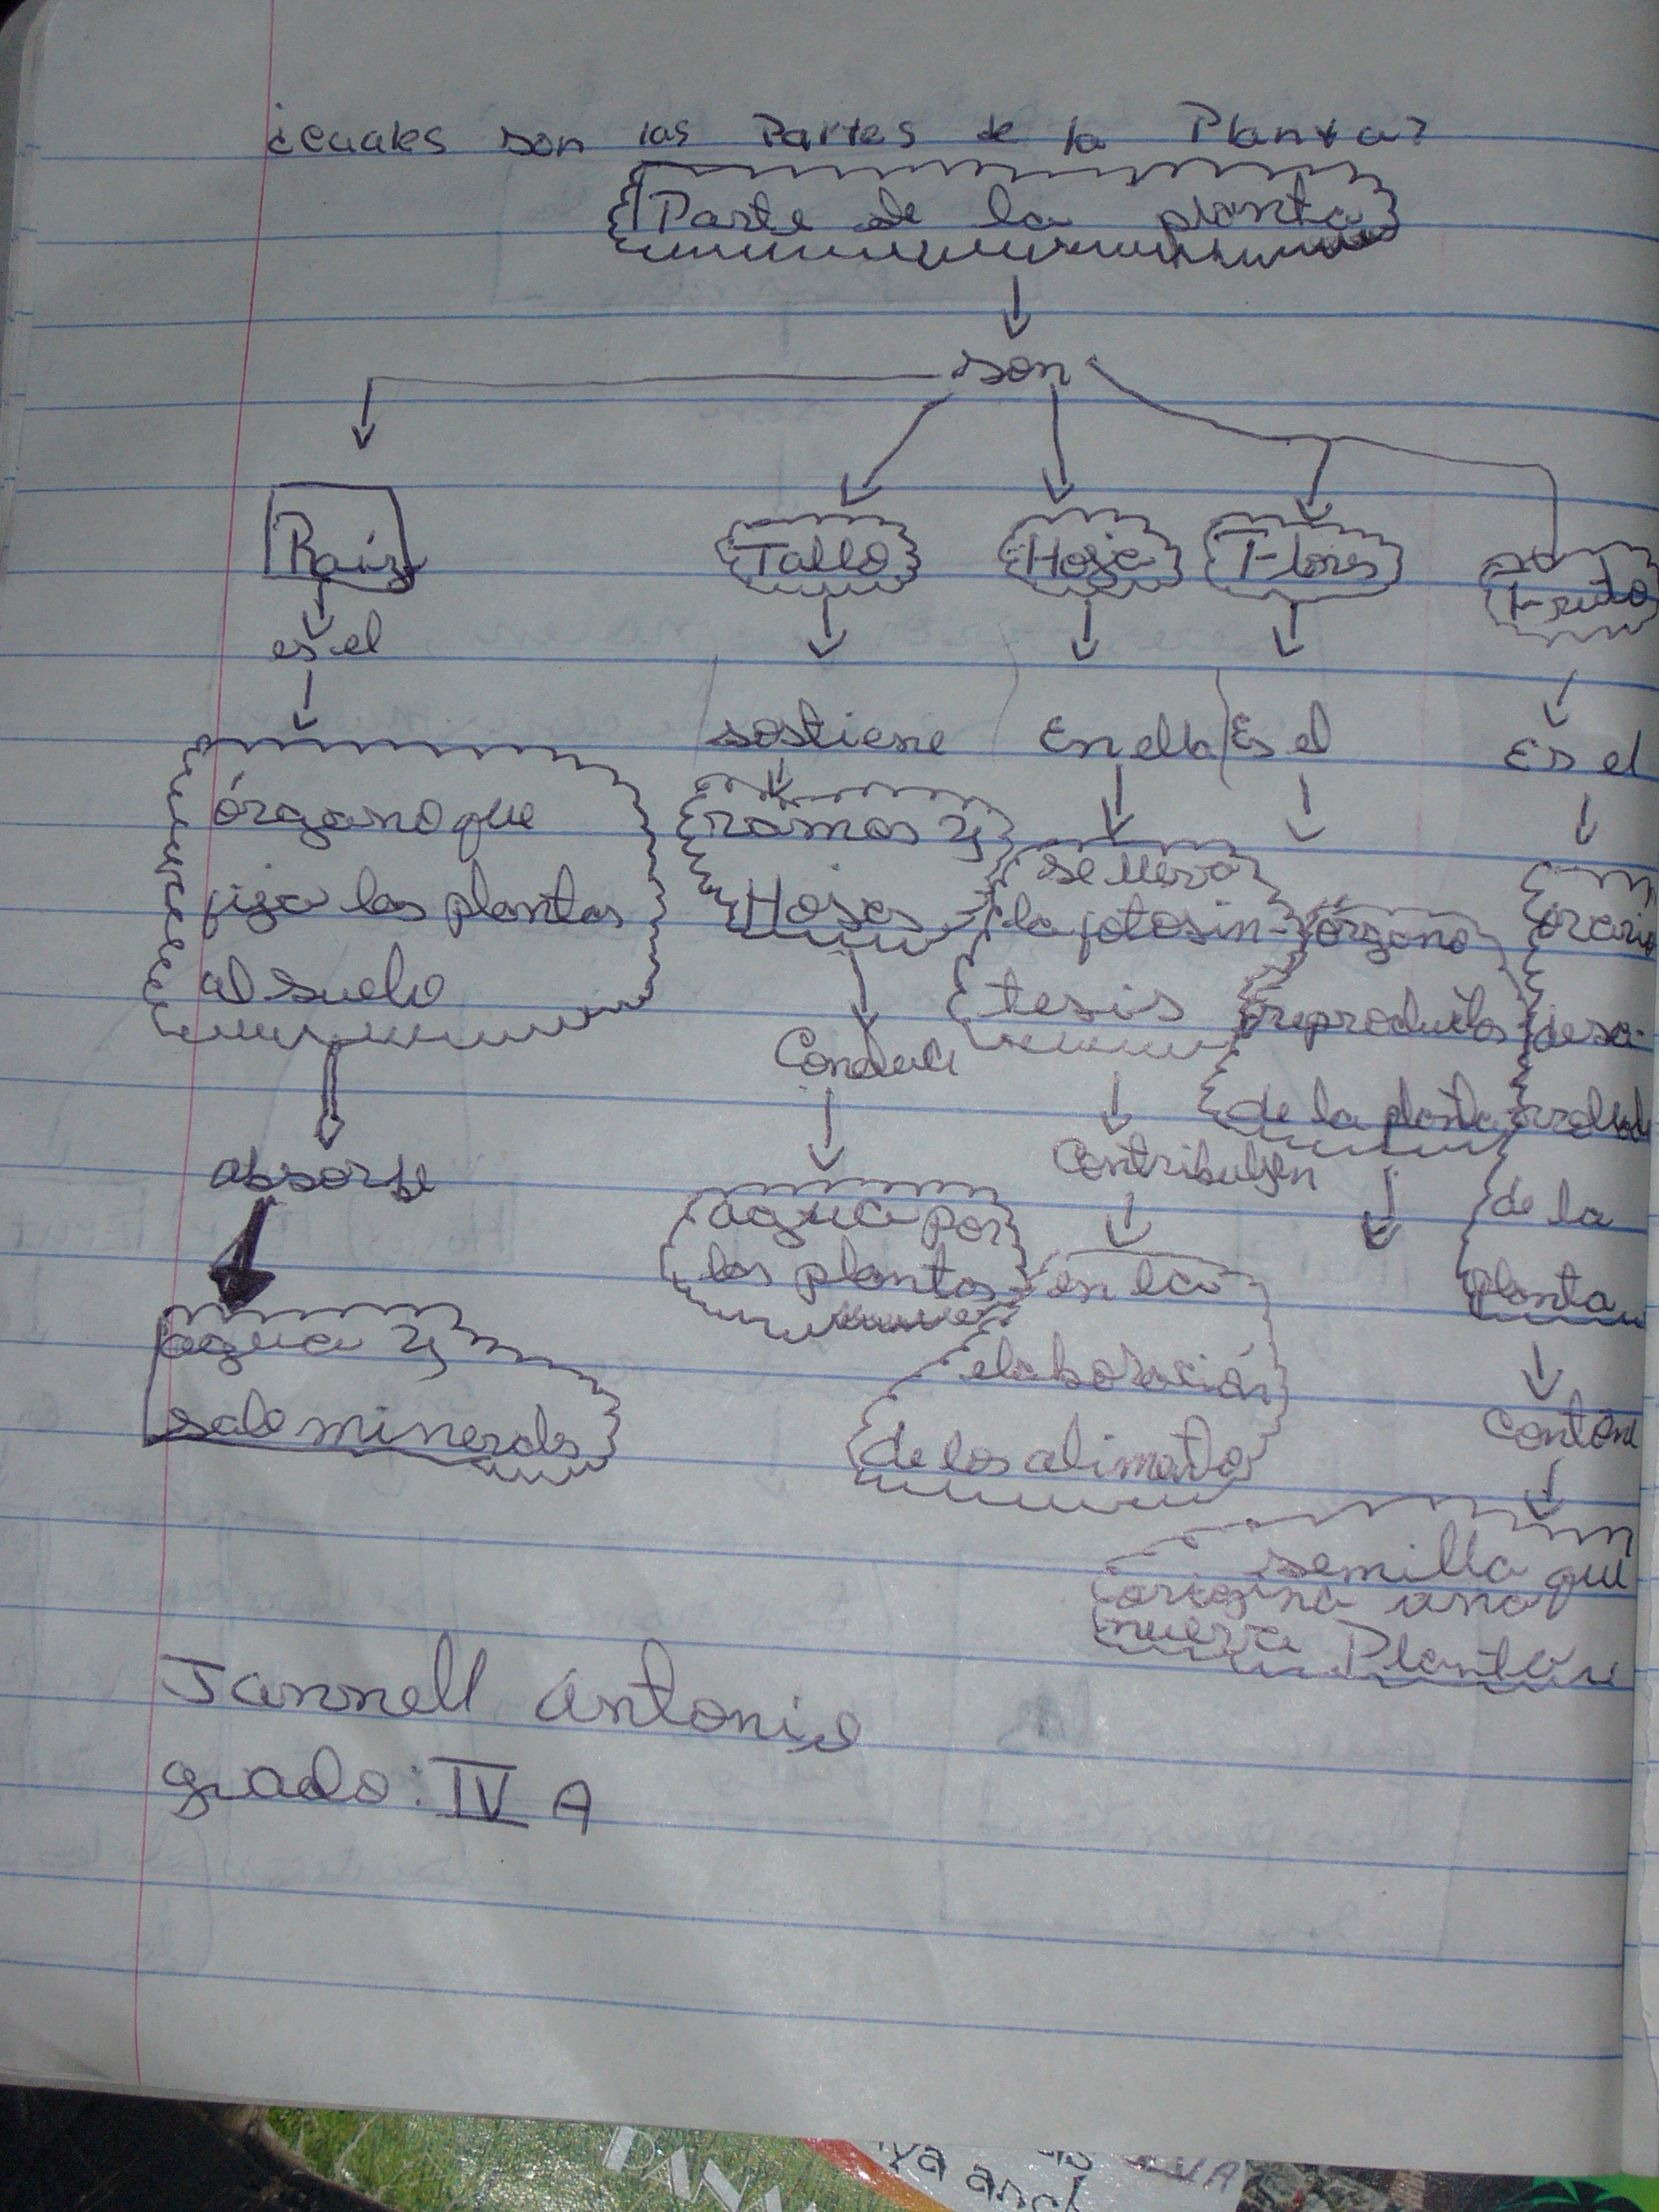 ¿cuales son las Partes de la Planta?
Parte de la planta
son
Raíz
es el
órgano que
fija las plantas
al suelo
absorbe
agua y
sale minerales
Tallo
sostiene
ramas y
Hojas
Conduce
agua por
las plantas
Hoja
En ella
se lleva
la fotosin-
tesis
Contribuyen
en la
elaboración
de los alimento
Flores
Es el
órgano
de la planta
Fruto
Es el
desa-
de la
planta
semilla que
origina una
nueva Planta
Jannell Antonio
grado: IV A
PAN
ya